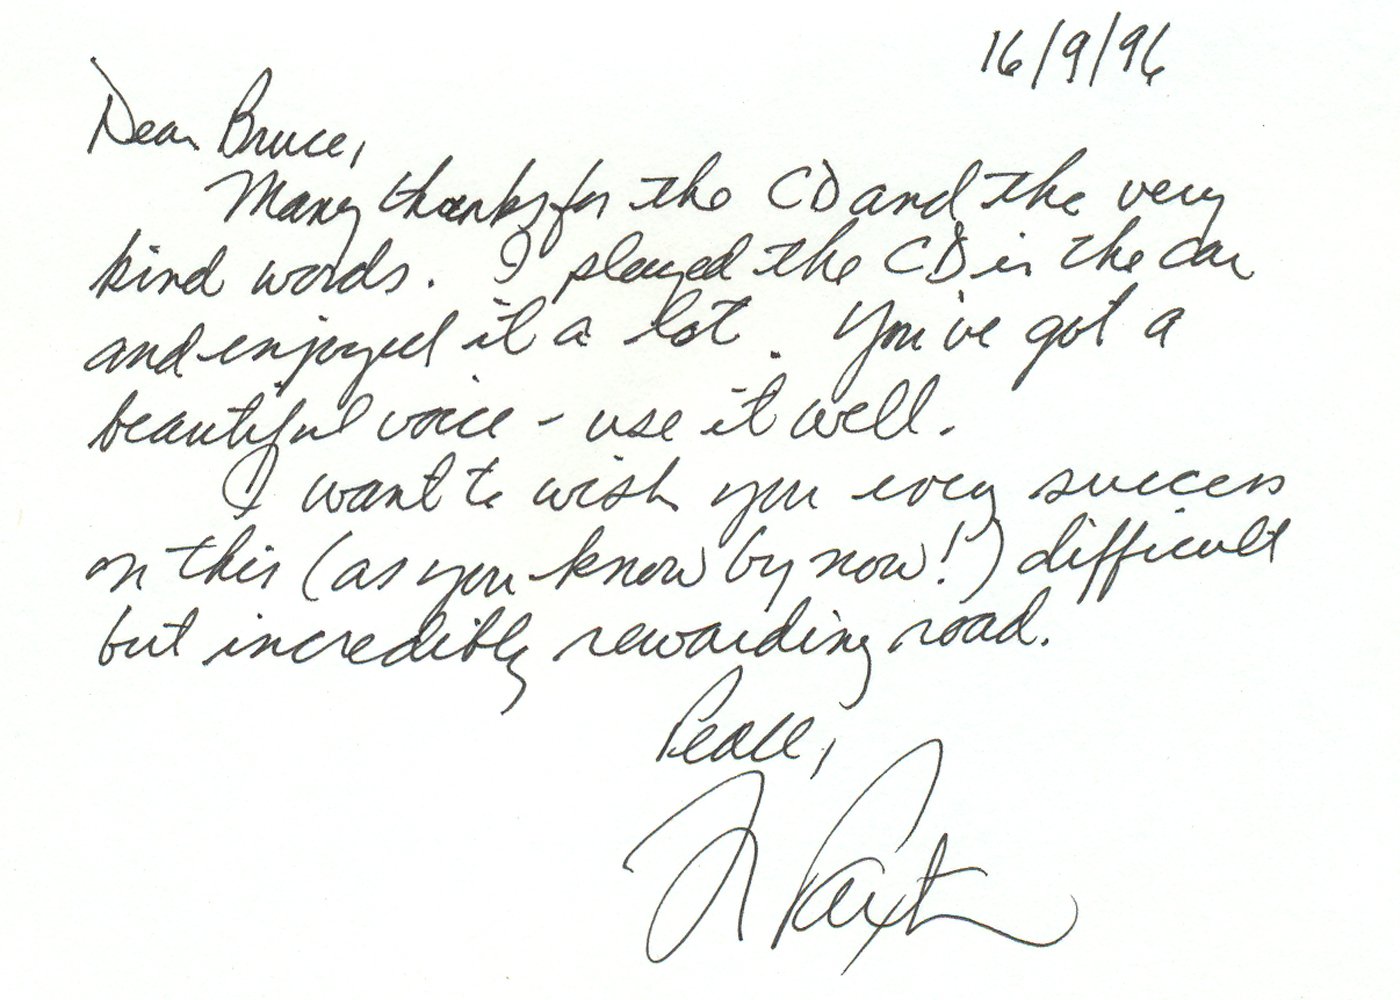 16/9/96
Dear Bruce,
Many thanks for the CD and the very
kind words. I played the CD in the car
and enjoyed it a lot. You've got a
beautiful voice - use it well.
I want to wish you every success
on this (as you know by now!) difficult
but incredibly rewarding road.
Peace,
Paxton